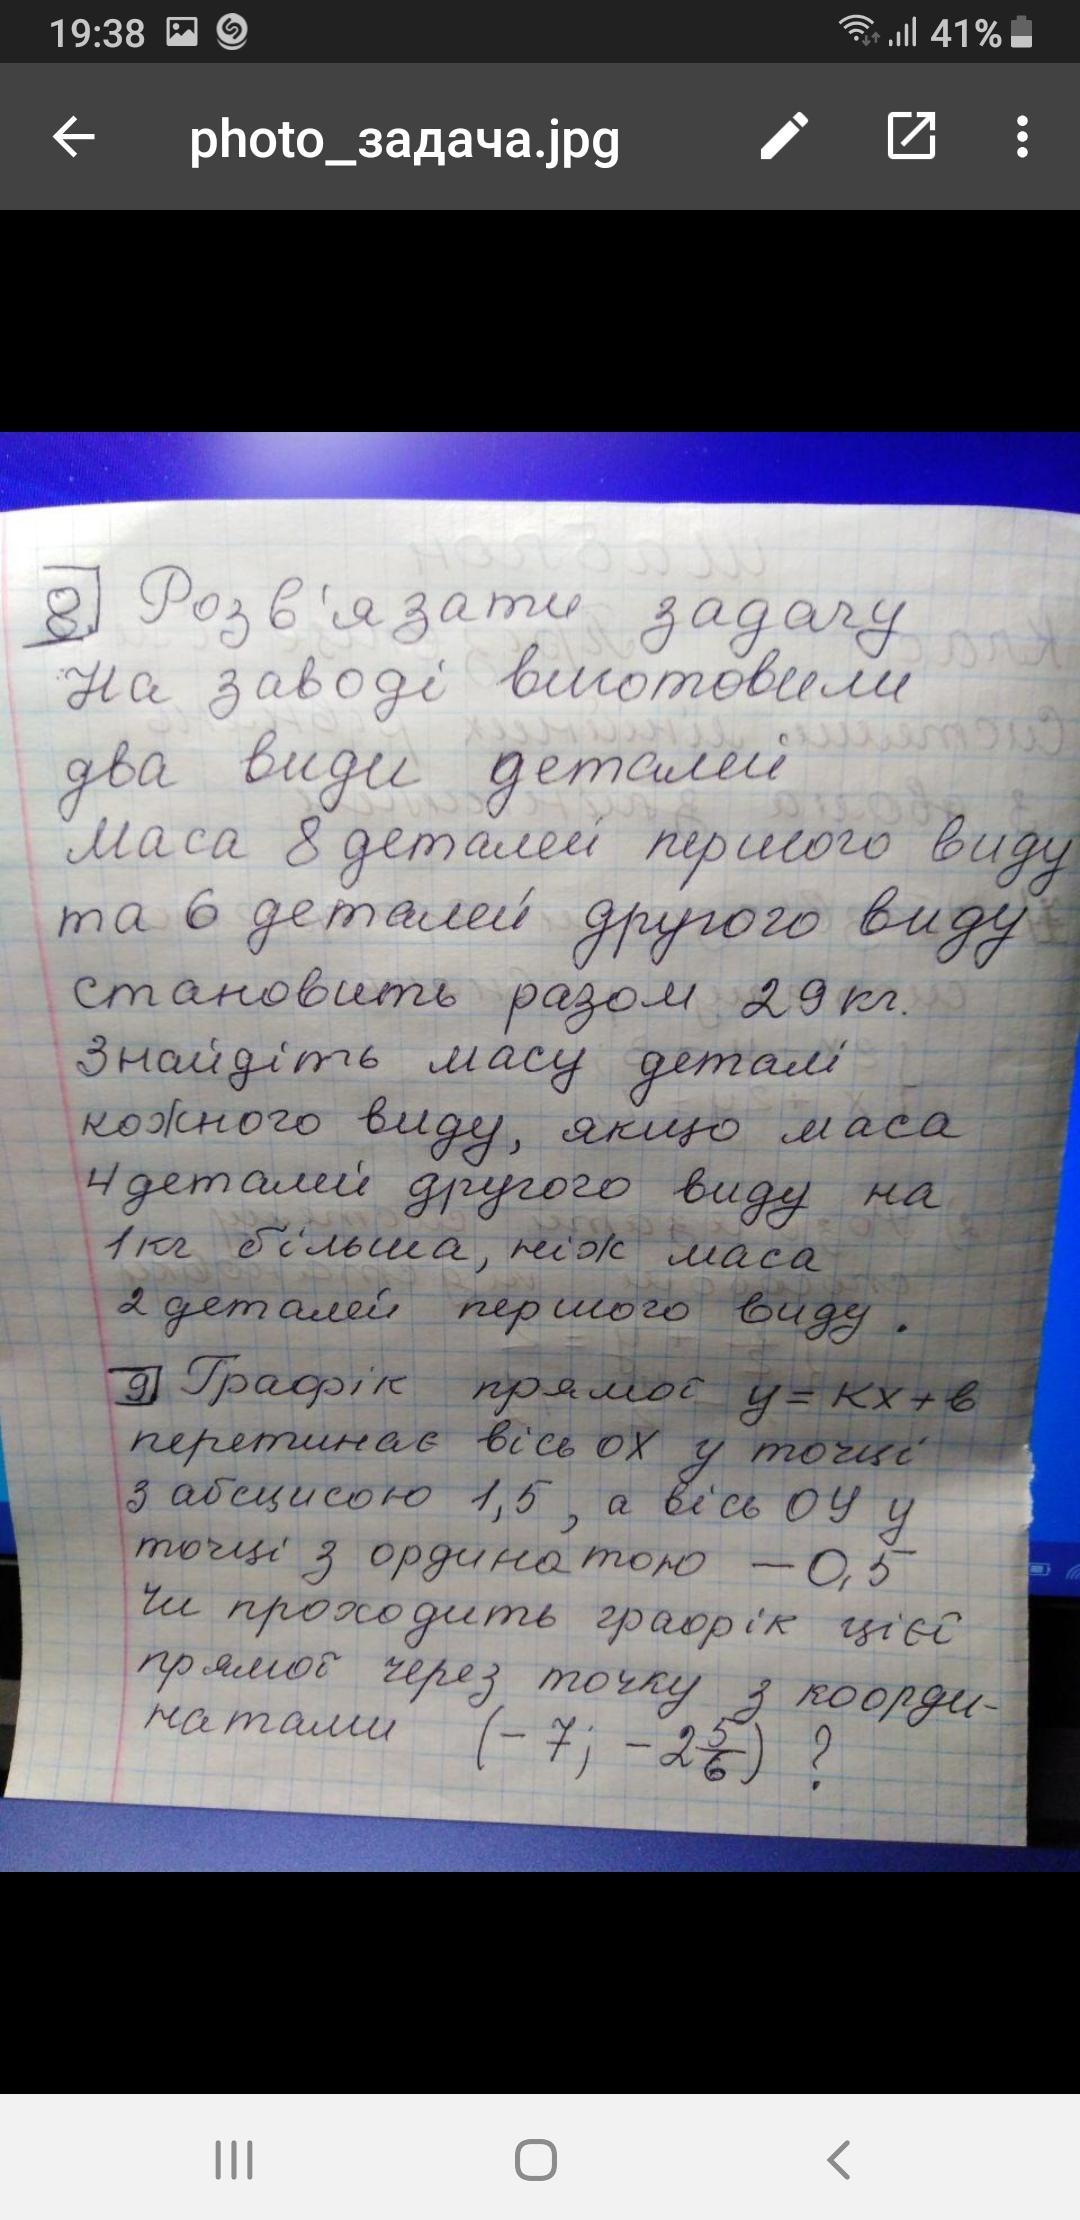 19:38 41%
photo_задача.jpg
8. Розв'язати задачу
На заводі виготовили
два види деталей
Маса 8 деталей першого виду
та 6 деталей другого виду
становить разом 29 кг.
Знайдіть масу деталі
кожного виду, якщо маса
4 деталей другого виду на
1 кг більша, ніж маса
2 деталей першого виду.
9 Графік прямої y = kx + b
перетинає вісь OX у точці
з абсцисою 1,5, а вісь OY у
точці з ординатою – 0,5
Чи проходить графік цієї
прямої через точку з коорди-
натами (- 7; - 2 5/6) ?